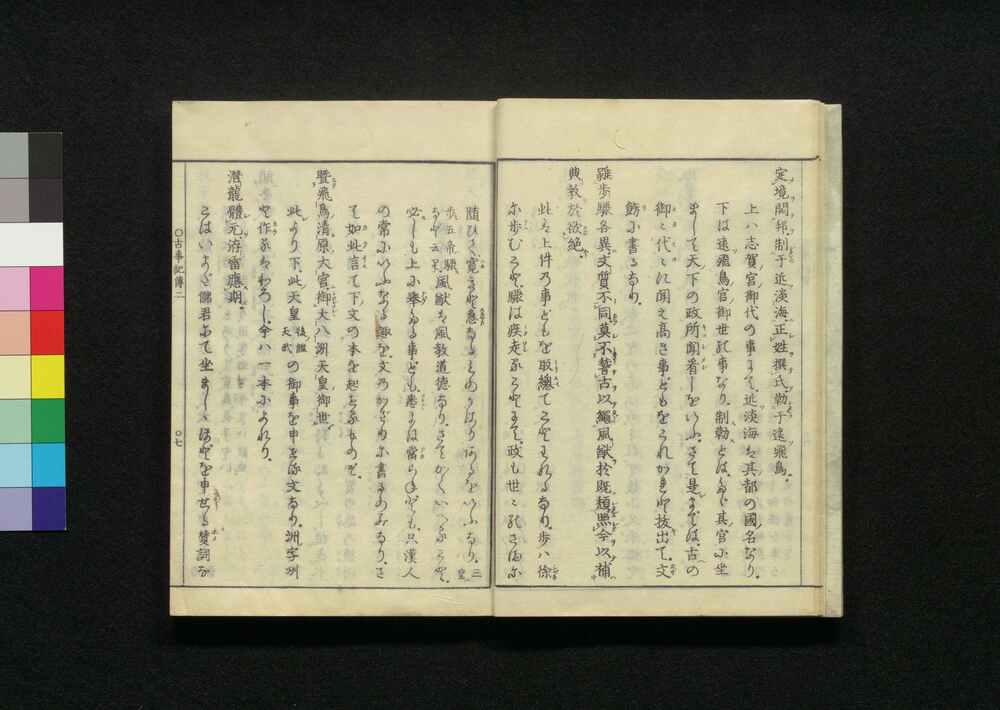 定境開邦、制于近淡海、正姓撰氏、勒于遠飛鳥、
上ハ志賀宮御代の事にて、近淡海は其都の國名なり、
下は遠飛鳥宮御世の事なり、制勒とは、たゞ其宮に坐
まして天下の政所聞看しをいふ、さて是までは、古の
御々代々に聞え高き事どもをこれかれと抜出て、文
飾に書るなり、
雖步驟各異、文質不同、莫不稽古以繩風猷於既頽、照今以補
典教於欲絶、
此は上件の事どもを取總てことわれるなり、步ハ徐
に步むこと、驟は疾走ることにて、政も世々のさまに
随ひて、寛きと急なるとのかはりあるをいふなり、三皇
步五帝驟など云り、風猷は風教道德なり、さてかくいへることは、
必しも上に舉たる事ども、悉には當らねども、只漢人
の常にいふなる趣を、文のかざりに書るのみなり、さ
て如此言て、下文の本を起せるものぞ、
曁飛鳥清原大宮御大八洲天皇御世、
此より下、此天皇後謚天武の御事を申せる文なり、洲字州
と作るはわろし、今ハ一本によれり、
潛龍體元、洊雷應期、
こはいまだ儲君にて坐ましゝほどを申せる賛詞な
○古事記傳二
○七